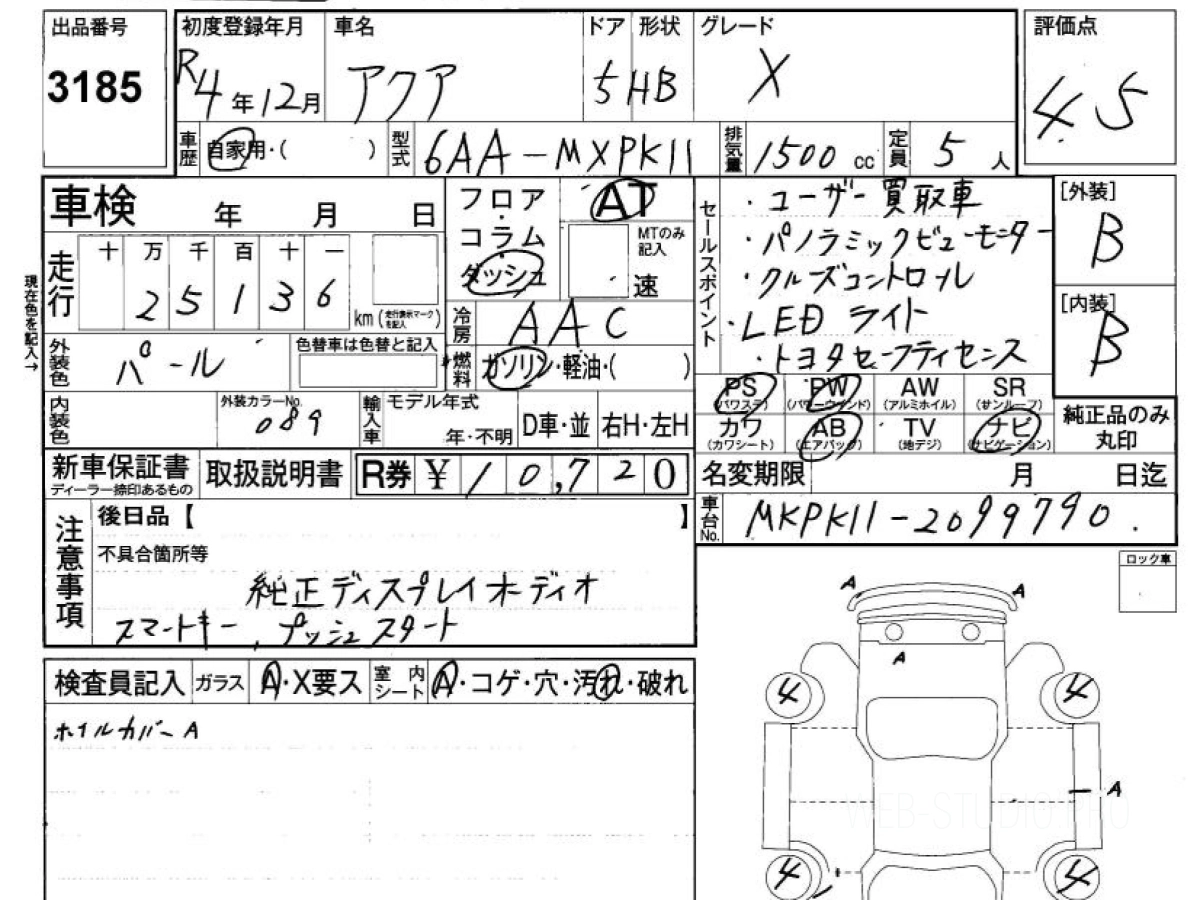 出品番号 初度登録年月 車名 ドア 形状 グレード 評価点
3185 R4年12月 アクア 5 HB X 4.5
車歴 自家用・( ) 型式 6AA-MXPK11 排気量 1500cc 定員 5人
車検 年 月 日
フロア・コラム・ダッシュ AT
MTのみ記入 速
走行 十 万 千 百 十 一
2 5 1 3 6 km (走行表示マークを記入)
現在色を記入→
冷房 AAC
外装色 パール 色替車は色替と記入
燃料 ガソリン・軽油・( )
内装色 外装カラーNo. 089
輸入車 モデル年式 年・不明 D車・並 右H・左H
新車保証書 ディーラー捺印あるもの 取扱説明書 R券 ¥10,720
セールスポイント
・ユーザー買取車
・パノラミックビューモニター
・クルーズコントロール
・LEDライト
・トヨタセーフティセンス
[外装] B
[内装] B
PS (パワステ) PW (パワーウインド) AW (アルミホイル) SR (サンルーフ)
カワ (カワシート) AB (エアバッグ) TV (地デジ) ナビ (ナビゲーション)
純正品のみ丸印
名変期限 月 日迄
車台No. MKPK11-2099790.
注意事項
後日品【 】
不具合箇所等
純正ディスプレイオーディオ
スマートキー,プッシュスタート
検査員記入 ガラス A・X要ス 室内シート A・コゲ・穴・汚れ・破れ
ホイルカバーA
ロック車
A A
A
4 4
A
4 4
WEB-STUDIO.PRO